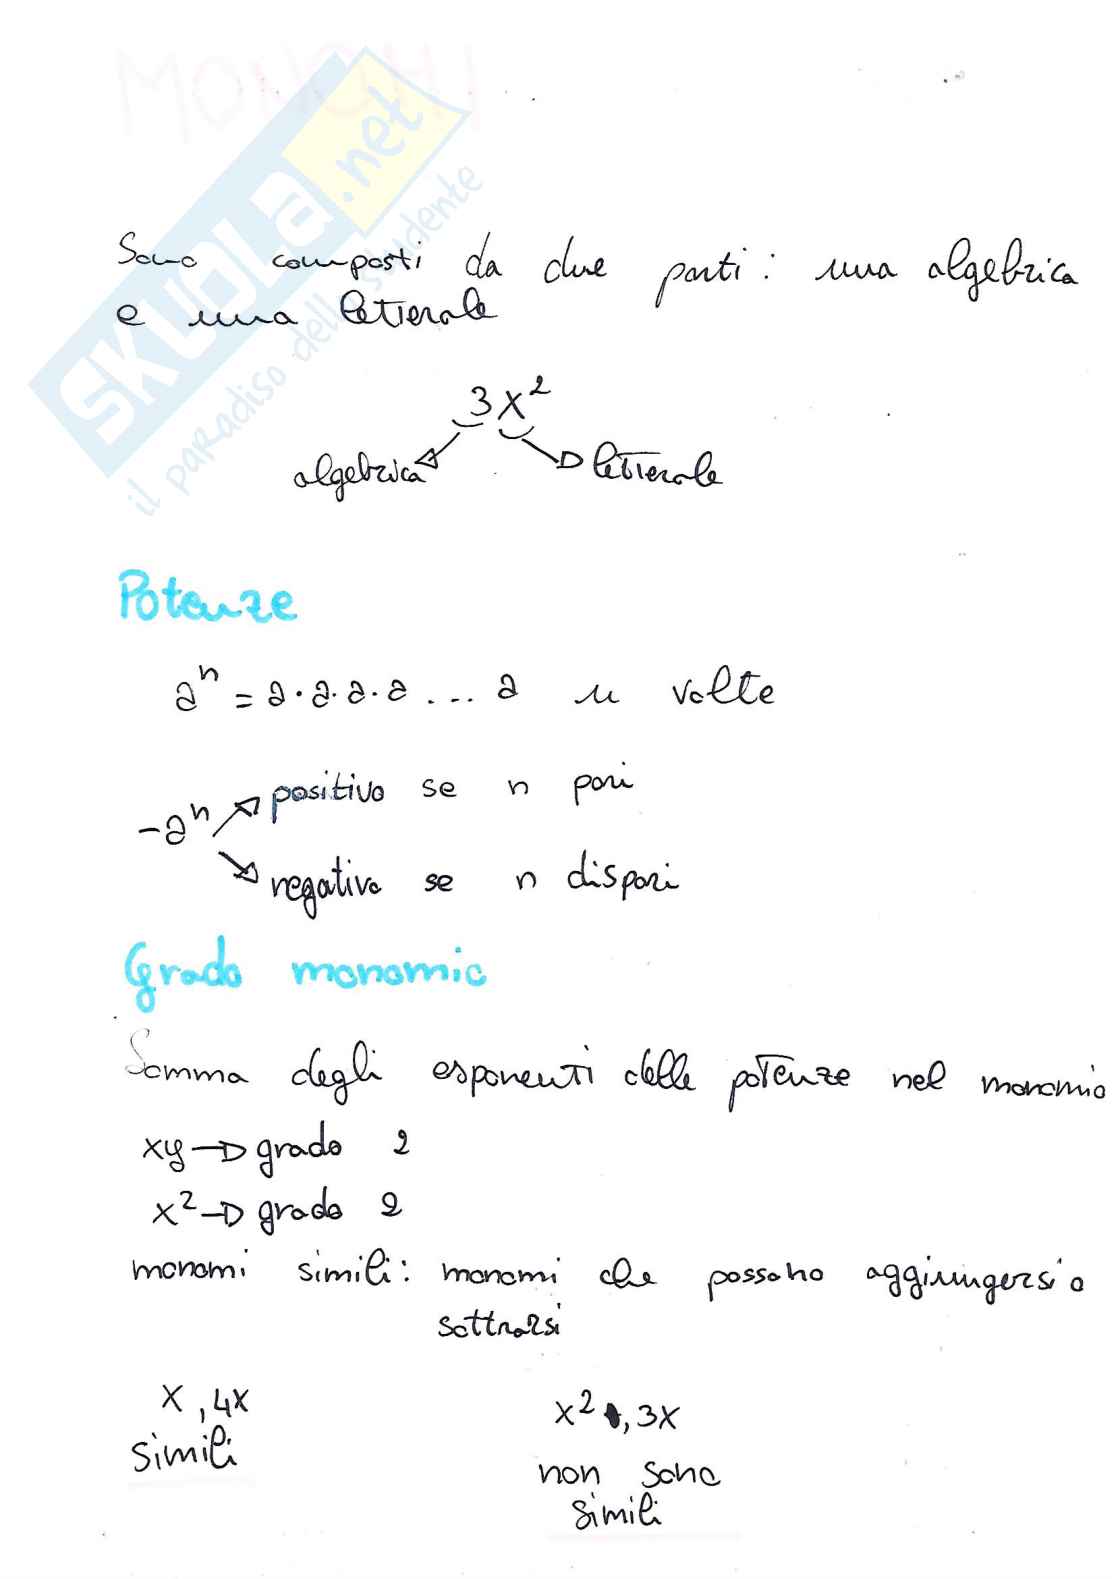 MONOMI
SKUOLA.net
il paradiso dello studente
Sono composti da due parti: una algebrica
e una letterale
3x²
algebrica letterale
Potenze
aⁿ = a·a·a·a ... a n volte
positivo se n pari
-aⁿ
negativo se n dispari
Grado monomio
Somma degli esponenti delle potenze nel monomio
xy → grado 2
x² → grado 2
monomi simili: monomi che possono aggiungersi o
sottrarsi
x, 4x
x² , 3x
simili
non sono
simili